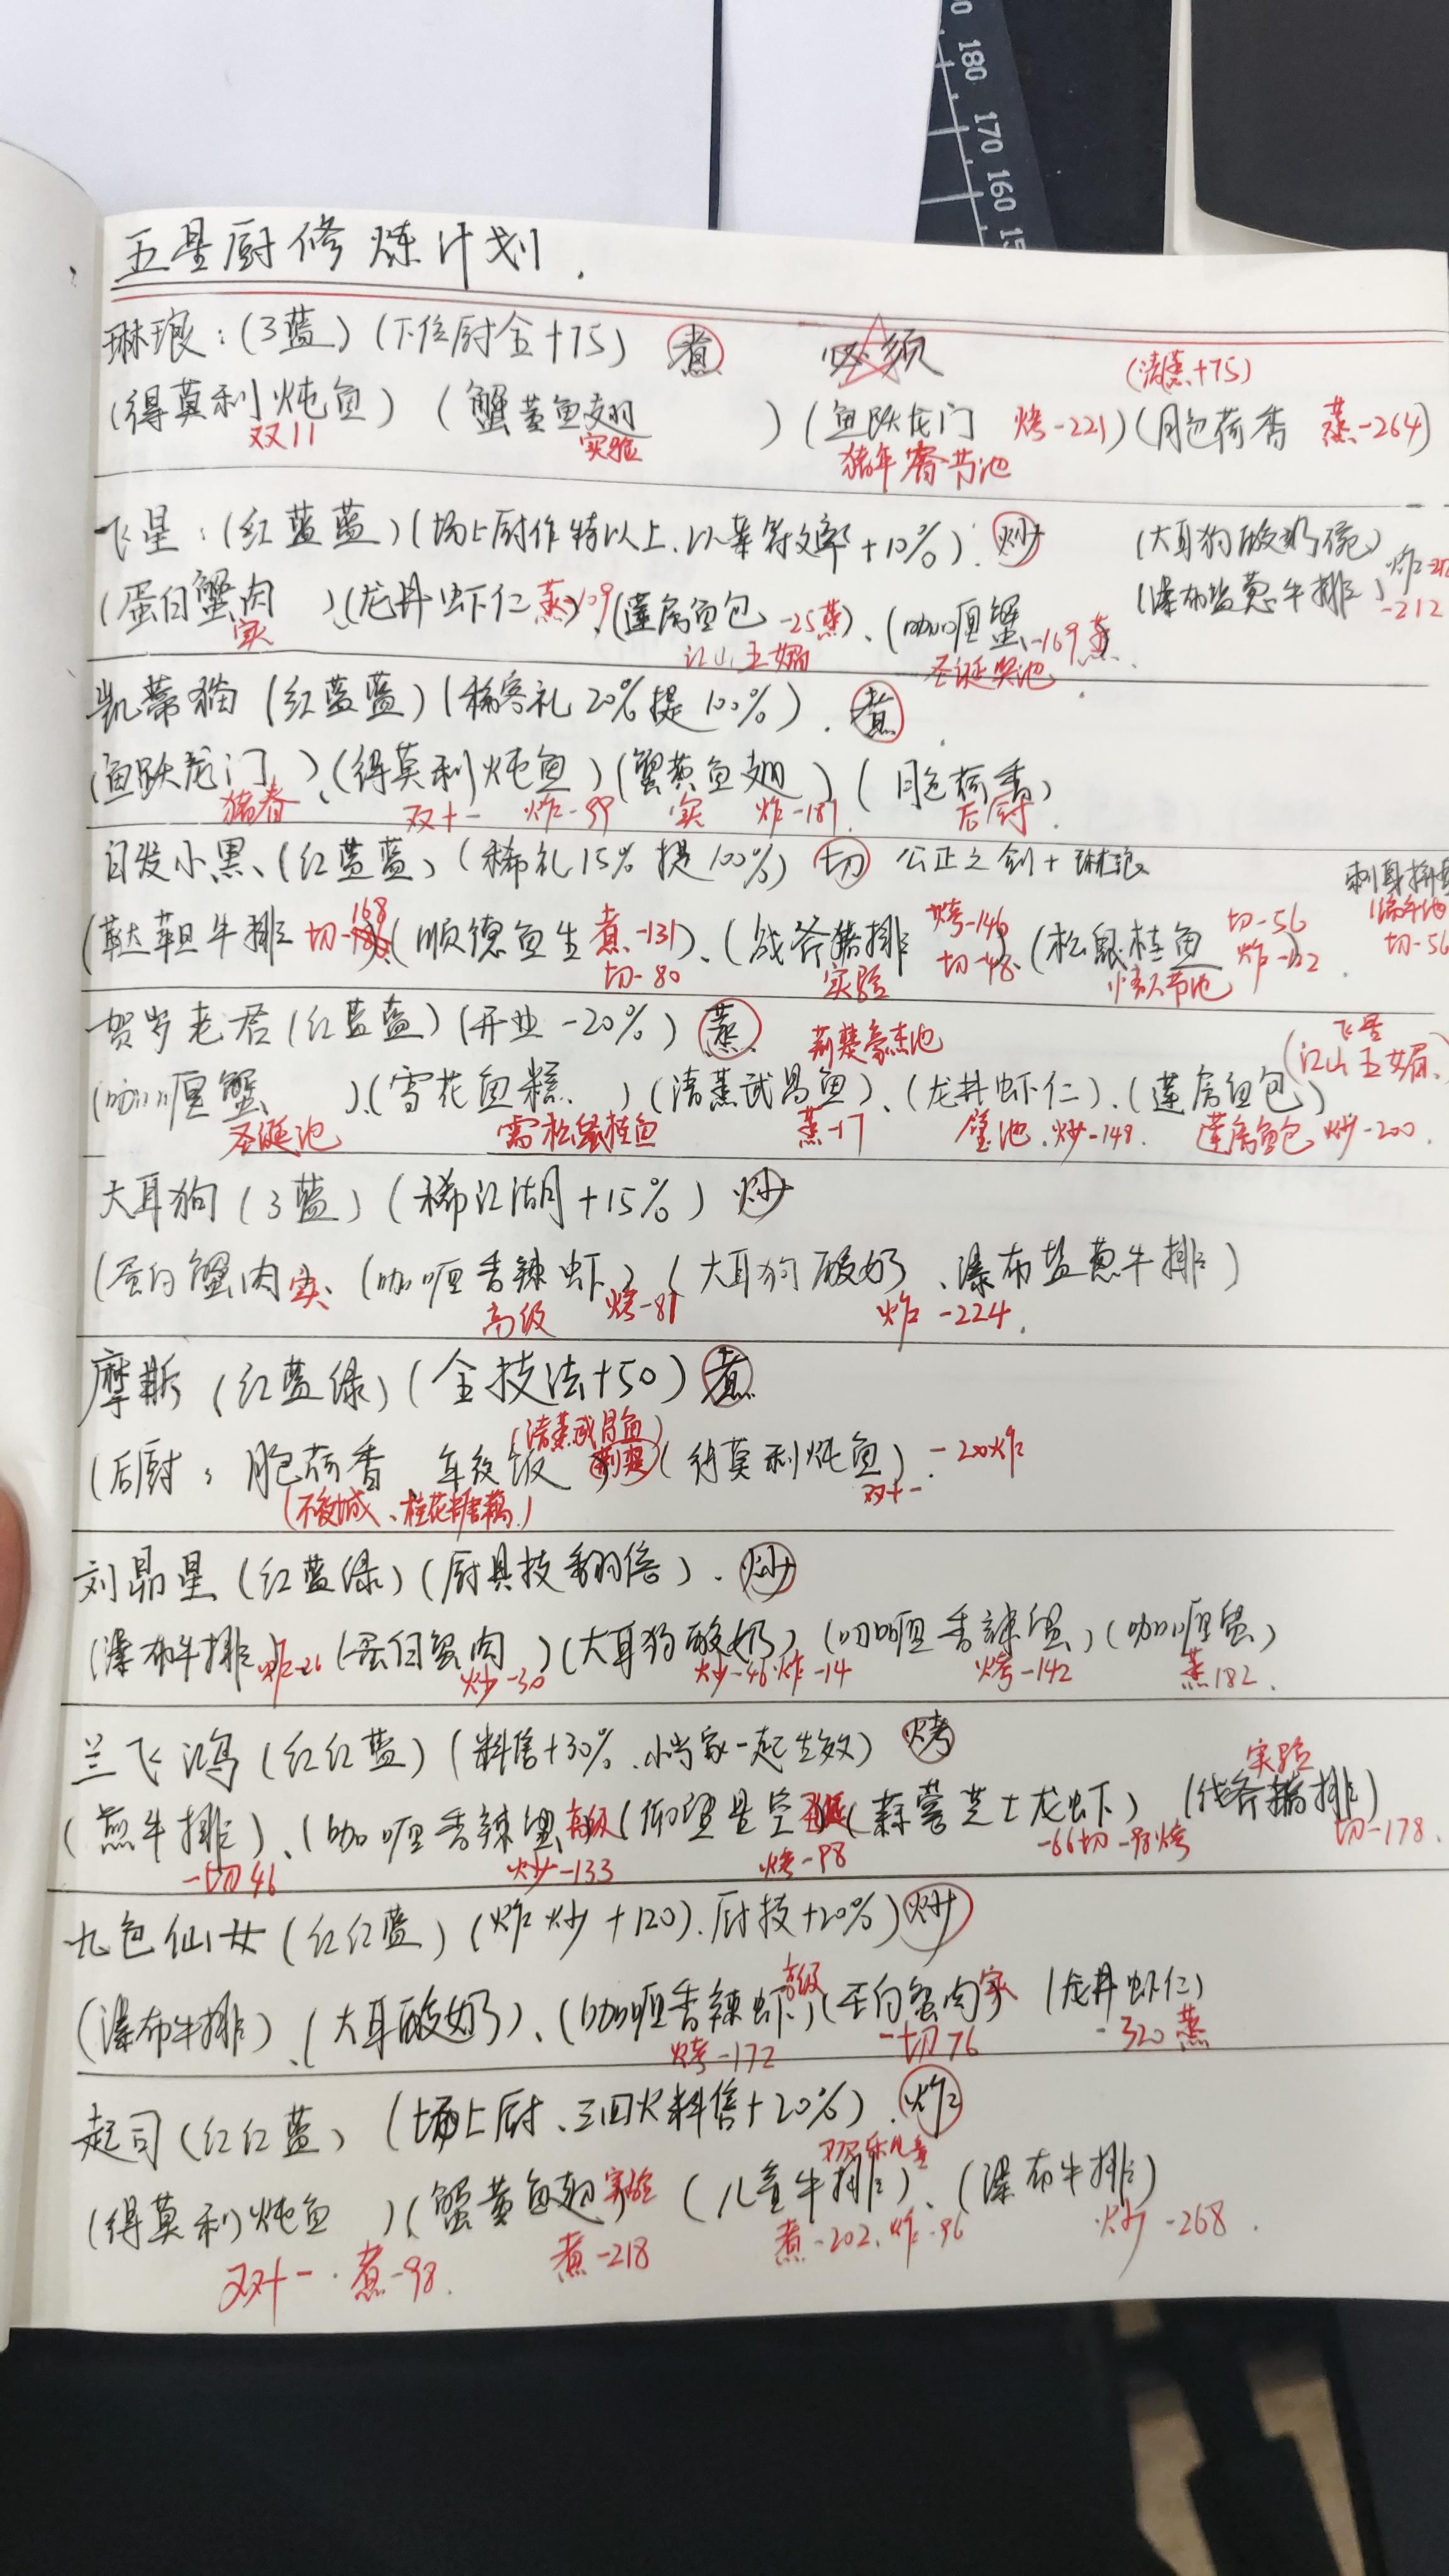 180 170 160
五星厨修炼计划.
琳琅：(3蓝)(下位厨全+75) 煮 必须
(清蒸+75)
(得莫利炖鱼) (蟹黄鱼翅) (鱼跃龙门 烤-221)(月色荷香 蒸-264)
双11 实验 猪年春节池
飞星：(红蓝蓝)(场上厨作特以上.以菜符文率+10%). 炒 (大耳狗酸奶碗)
(蛋白蟹肉)、(龙井虾仁 蒸109)、(莲房鱼包 -25蒸)、(咖喱蟹 -169蒸 (瀑布盐葱牛排) -212
实 江山五媚 圣诞奖池
凯蒂猫(红蓝蓝)(稀客礼20%提100%). 煮
(鱼跃龙门)、(得莫利炖鱼)(蟹黄鱼翅)(月色荷香)
猪春 双十一 炸-99 实 炸-187 后厨
白发小黑、(红蓝蓝)(稀礼15%提100%) 切 公正之剑+琳琅
(鞑靼牛排 切-168)(顺德鱼生 煮-131)、(战斧猪排 烤-146)、(松鼠桂鱼 切-56
切-80 实验 切-48
贺岁老君(红蓝蓝)(开业-20%) 蒸 荆楚豪杰池
(咖喱蟹)、(雪花鱼糕)(清蒸武昌鱼)、(龙井虾仁)、(莲房鱼包) (飞星 江山五媚)
圣诞池 需松鼠桂鱼 蒸-17 炒-148. 莲房鱼包 炒-200.
大耳狗(3蓝)(稀江湖+15%) 炒
(蛋白蟹肉 实、(咖喱香辣虾)(大耳狗酸奶、瀑布盐葱牛排)
高级 烤-81 炸-224.
摩斯(红蓝绿)(全技法+50) 煮
(清蒸武昌鱼)
(后厨：月色荷香 年夜饭 荆楚 (得莫利炖鱼). -200炸
(不夜城、桂花糖藕) 双十一
刘昴星(红蓝绿)(厨具技翻倍). 炒
(瀑布牛排 炸-26 (蛋白蟹肉)(大耳狗酸奶)(咖喱香辣蟹)(咖喱蟹)
炒-30 炒-46炸-14 烤-142 蒸182.
兰飞鸿(红红蓝)(料售+30%、小当家一起生效) 烤
实验
(煎牛排)、(咖喱香辣蟹 高级 (仰望星空 (蒜蓉芝士龙虾) (战斧猪排)
-切46 炒-133 烤-98 -66切-98烤 切-178.
九色仙女(红红蓝)(炸炒+120).厨技+20%) 炒
(瀑布牛排)、(大耳酸奶)、(咖喱香辣虾 高级)(蛋白蟹肉 实 (龙井虾仁)
烤-172 -切76 -320蒸
起司(红红蓝)(场上厨、三回火料售+20%). 炸
(得莫利炖鱼)(蟹黄鱼翅 实验 (儿童牛排)、(瀑布牛排)
双十一.煮-98. 煮-218 煮-202.炸-96 炒-268.